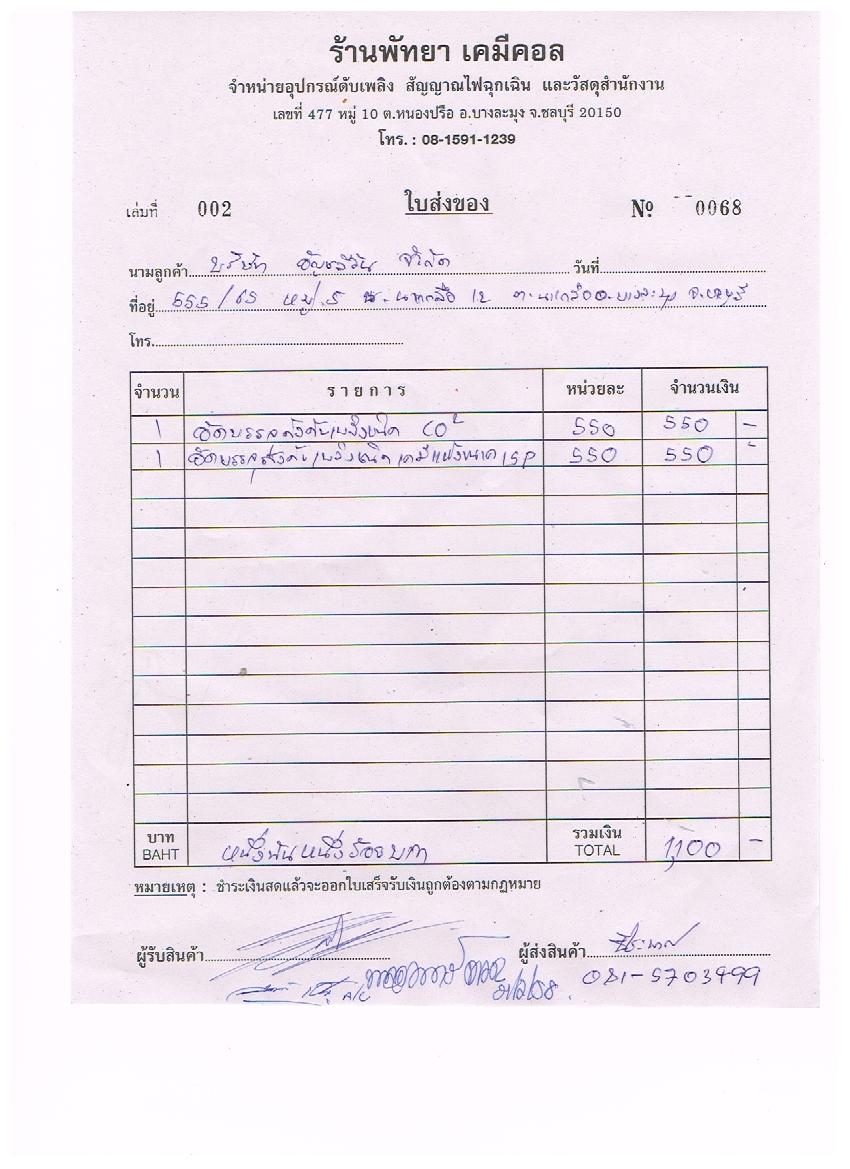 ร้านพัทยา เคมีคอล
จำหน่ายอุปกรณ์ดับเพลิง สัญญาณไฟฉุกเฉิน และวัสดุสำนักงาน
เลขที่ 477 หมู่ 10 ต.หนองปรือ อ.บางละมุง จ.ชลบุรี 20150
โทร. : 08-1591-1239
เล่มที่ 002 ใบส่งของ Nº 0068
นามลูกค้า บริษัท จำกัด วันที่
ที่อยู่ 555/65 หมู่.5 ซ.นาเกลือ 12 ต.นาเกลือ อ.บางละมุง จ.ชลบุรี
โทร.
จำนวน รายการ หน่วยละ จำนวนเงิน
1 อัดบรรจุถังดับเพลิงชนิด CO2 550 550 -
1 อัดบรรจุถังดับเพลิงชนิดเคมีแห้งขนาด 15P 550 550 -
บาท หนึ่งพันหนึ่งร้อยบาท รวมเงิน 1,100 -
BAHT TOTAL
หมายเหตุ : ชำระเงินสดแล้วจะออกใบเสร็จรับเงินถูกต้องตามกฎหมาย
ผู้รับสินค้า ผู้ส่งสินค้า
A/C 081-5703499